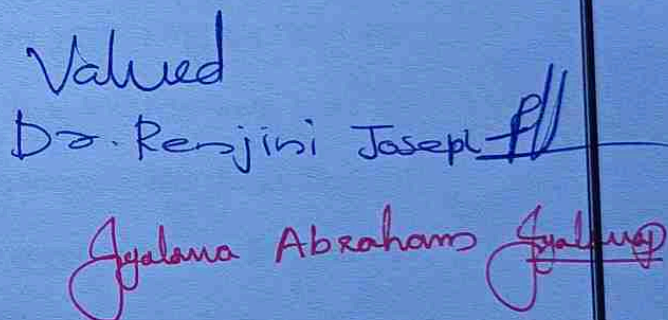 Valued
Dr. Renjini Joseph
Abraham